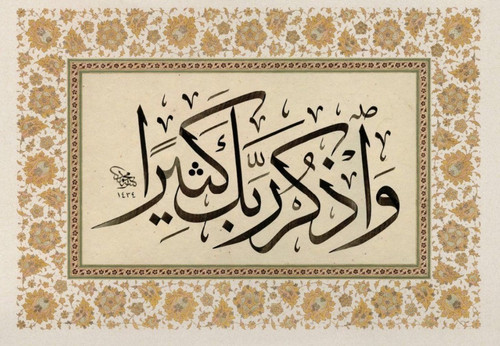 وَاذْكُرْ رَبَّكَ كَثِيرًا
١٤٣٤